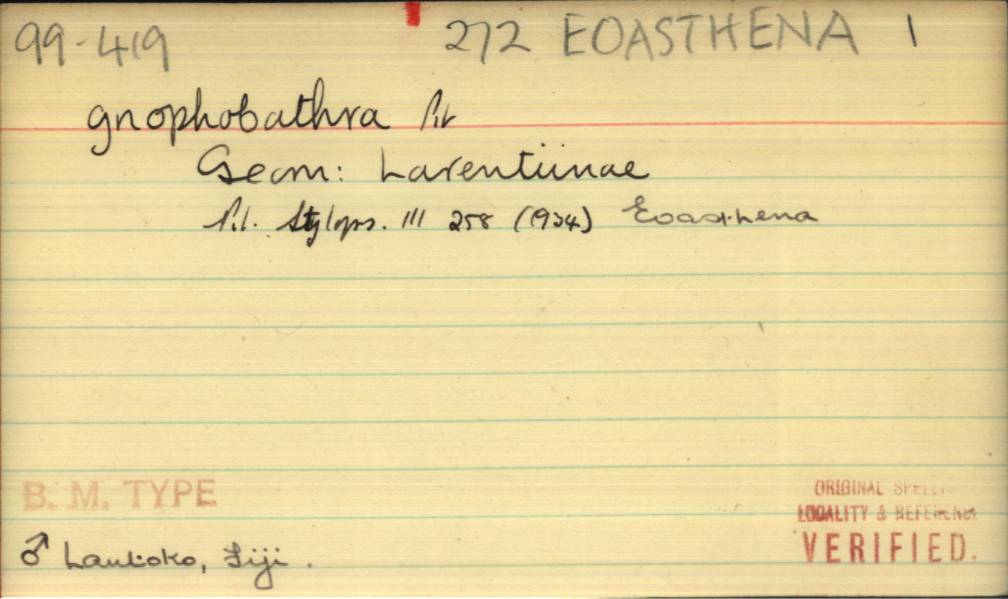 99-419 272 EOASTHENA 1
gnophobathra Prt
Geom: Larentiinae
Prt. Stylops. III 258 (1934) Eoasthena
B. M. TYPE
ORIGINAL SPELLING
LOCALITY & REFERENCE
VERIFIED.
♂ Lautoko, Fiji.